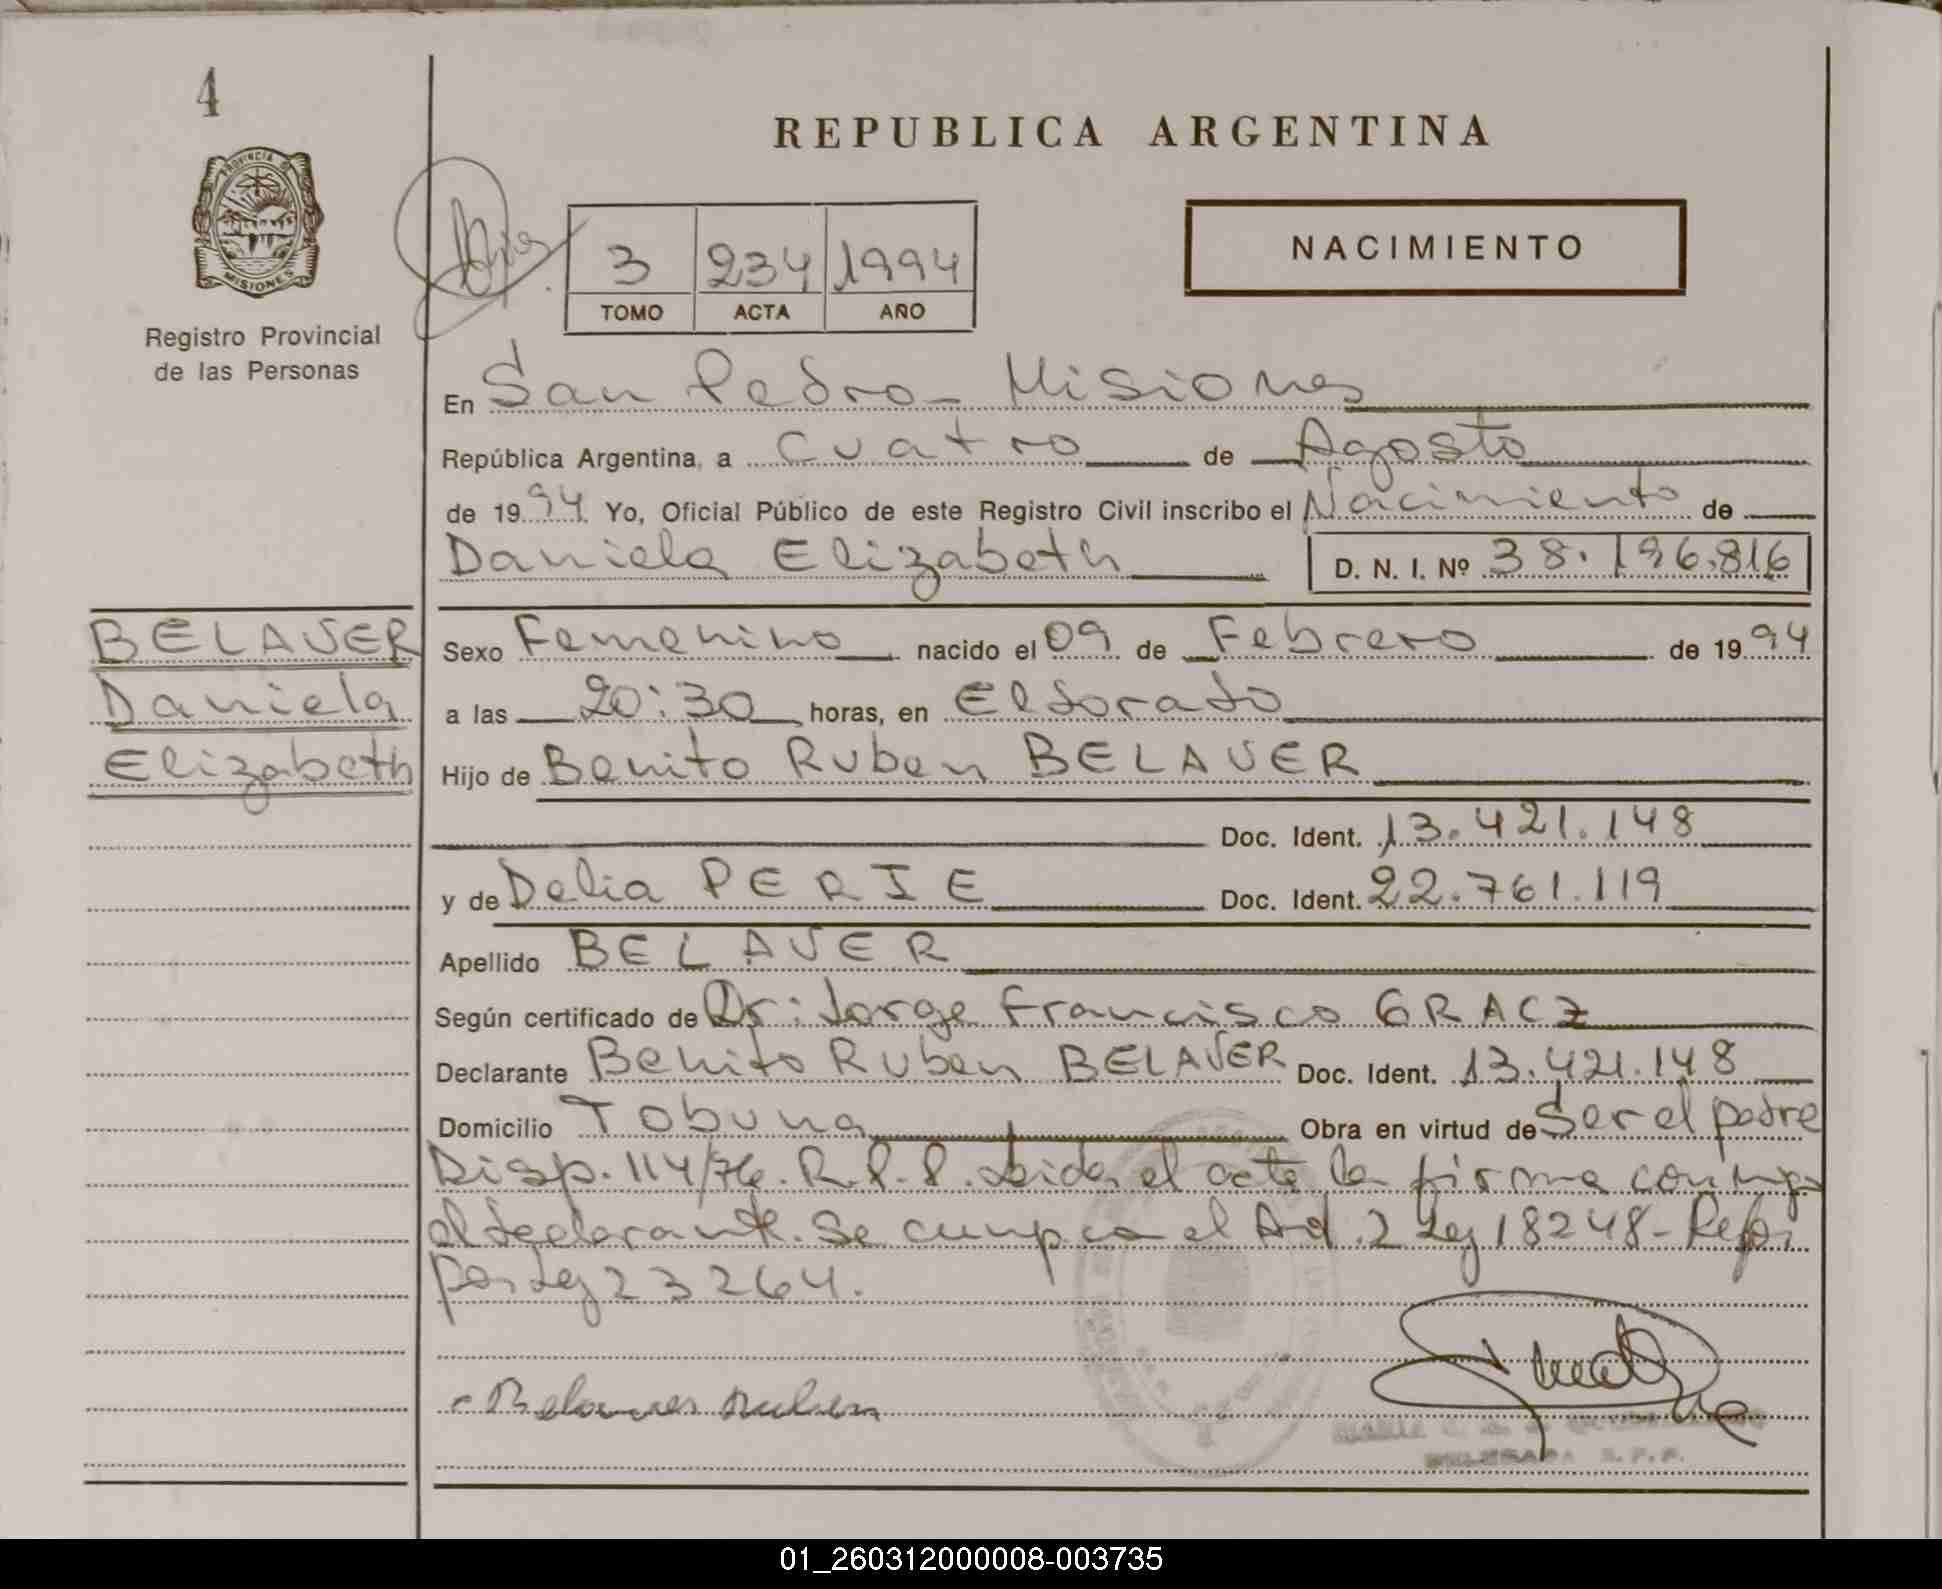 4
REPUBLICA ARGENTINA
PROVINCIA DE
MISIONES
Registro Provincial
de las Personas
3 234 1994
TOMO ACTA AÑO
NACIMIENTO
En San Pedro - Misiones
República Argentina, a Cuatro de Agosto
de 1994 Yo, Oficial Público de este Registro Civil inscribo el Nacimiento de
Daniela Elizabeth D. N. I. Nº 38.196.816
BELAVER
Daniela
Elizabeth
Sexo Femenino nacido el 09 de Febrero de 1994
a las 20:30 horas, en Eldorado
Hijo de Benito Ruben BELAVER
Doc. Ident. 13.421.148
y de Delia PERIE Doc. Ident. 22.761.119
Apellido BELAVER
Según certificado de Dr: Jorge Francisco GRACZ
Declarante Benito Ruben BELAVER Doc. Ident. 13.421.148
Domicilio Tobuna Obra en virtud de Ser el padre
Disp. 114/76. R.P.P. Leida el acta la firma conmigo
el declarante. Se cumpca el Art. 2 Ley 18248- Refor
por Ley 23264.
Belaver Ruben
MARIA
DELEGADA R.P.P.
01_260312000008-003735